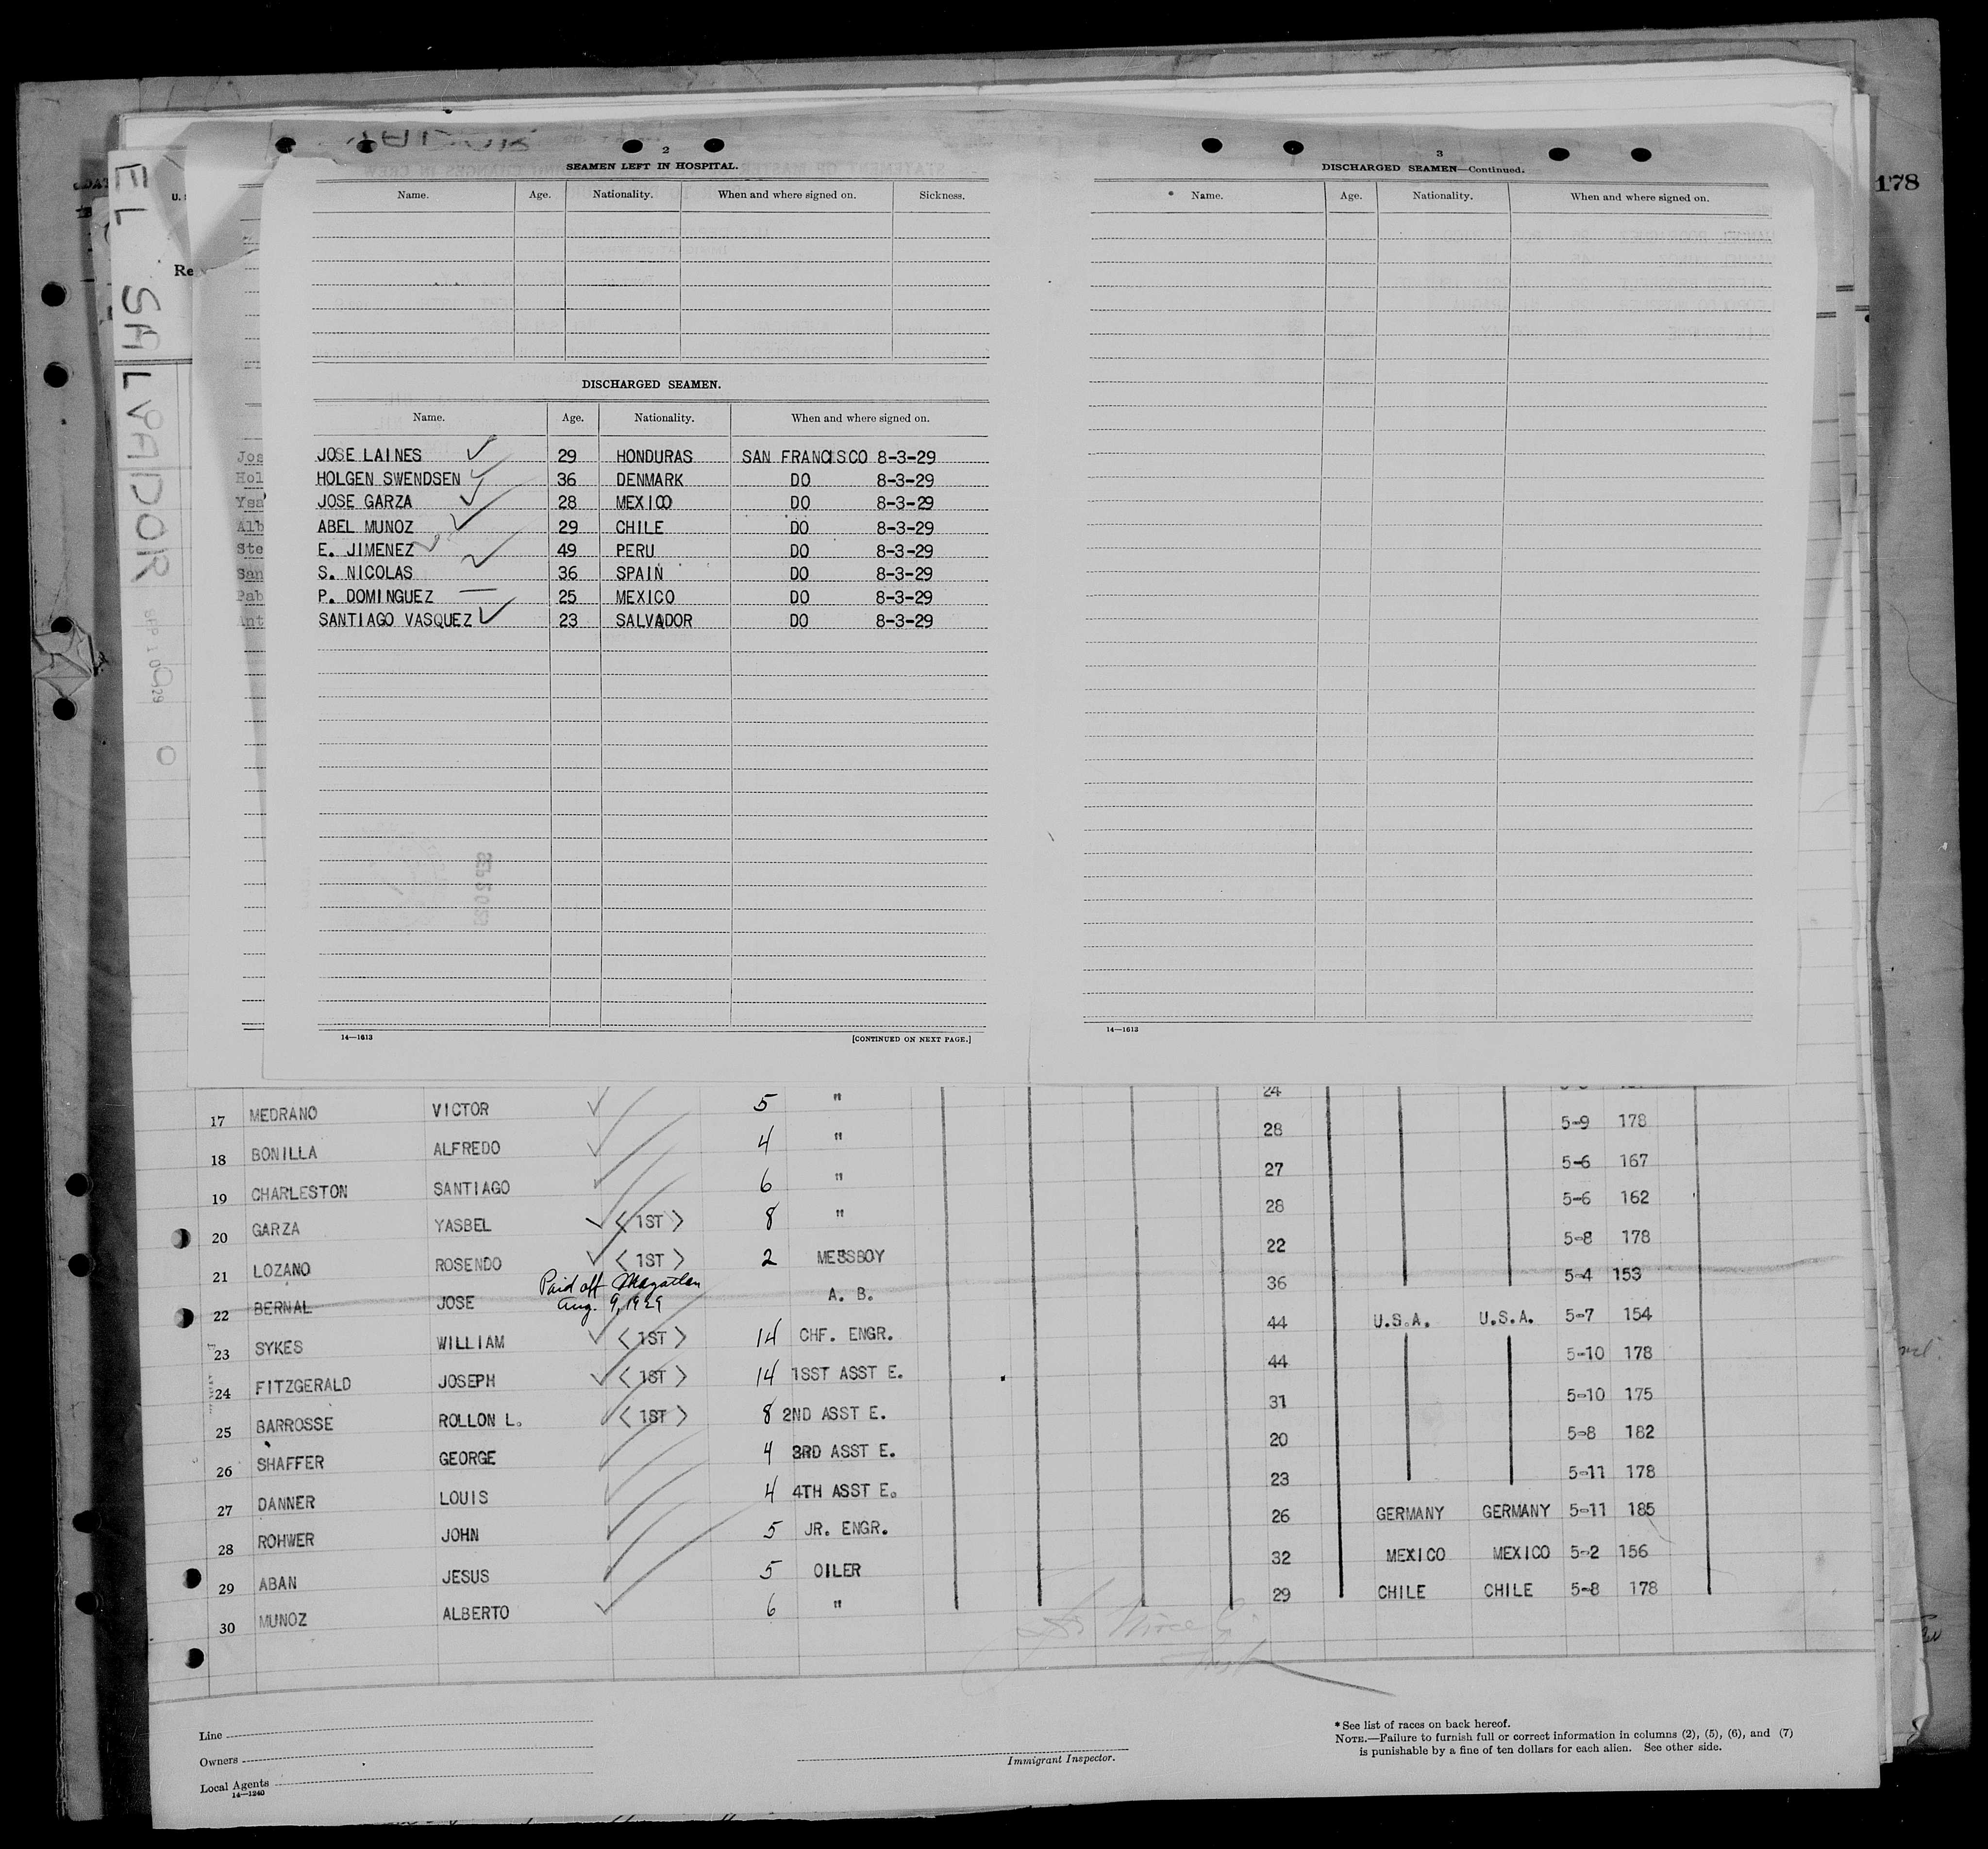 EL SALVADOR
SEP 10 1929
178
U.
Re
2
SEAMEN LEFT IN HOSPITAL.
Name. Age. Nationality. When and where signed on. Sickness.
DISCHARGED SEAMEN.
Name. Age. Nationality. When and where signed on.
Jos JOSE LAINES 29 HONDURAS SAN FRANCISCO 8-3-29
Hol HOLGEN SWENDSEN 36 DENMARK DO 8-3-29
Ysa JOSE GARZA 28 MEXICO DO 8-3-29
Alb ABEL MUNOZ 29 CHILE DO 8-3-29
Ste E. JIMENEZ 49 PERU DO 8-3-29
San S. NICOLAS 36 SPAIN DO 8-3-29
Pab P. DOMINGUEZ 25 MEXICO DO 8-3-29
Ant SANTIAGO VASQUEZ 23 SALVADOR DO 8-3-29
14—1613 [CONTINUED ON NEXT PAGE.]
3
DISCHARGED SEAMEN—Continued.
Name. Age. Nationality. When and where signed on.
14—1613
24
17 MEDRANO VICTOR 5 " 28 5-9 178
18 BONILLA ALFREDO 4 " 27 5-6 167
19 CHARLESTON SANTIAGO 6 " 28 5-6 162
20 GARZA YASBEL <1ST> 8 " 22 5-8 178
21 LOZANO ROSENDO <1ST> 2 MESSBOY 36 5-4 153
Paid off Mazatlan
Aug. 9, 1929
22 BERNAL JOSE A. B. 44 U.S.A. U.S.A. 5-7 154
23 SYKES WILLIAM <1ST> 14 CHF. ENGR. 44 5-10 178
24 FITZGERALD JOSEPH <1ST> 14 1SST ASST E. 31 5-10 175
25 BARROSSE ROLLON L. <1ST> 8 2ND ASST E. 20 5-8 182
26 SHAFFER GEORGE 4 3RD ASST E. 23 5-11 178
27 DANNER LOUIS 4 4TH ASST E. 26 GERMANY GERMANY 5-11 185
28 ROHWER JOHN 5 JR. ENGR. 32 MEXICO MEXICO 5-2 156
29 ABAN JESUS 5 OILER 29 CHILE CHILE 5-8 178
30 MUNOZ ALBERTO 6 "
Line
Owners
Local Agents
14—1240
Immigrant Inspector.
* See list of races on back hereof.
NOTE.—Failure to furnish full or correct information in columns (2), (5), (6), and (7)
is punishable by a fine of ten dollars for each alien. See other side.